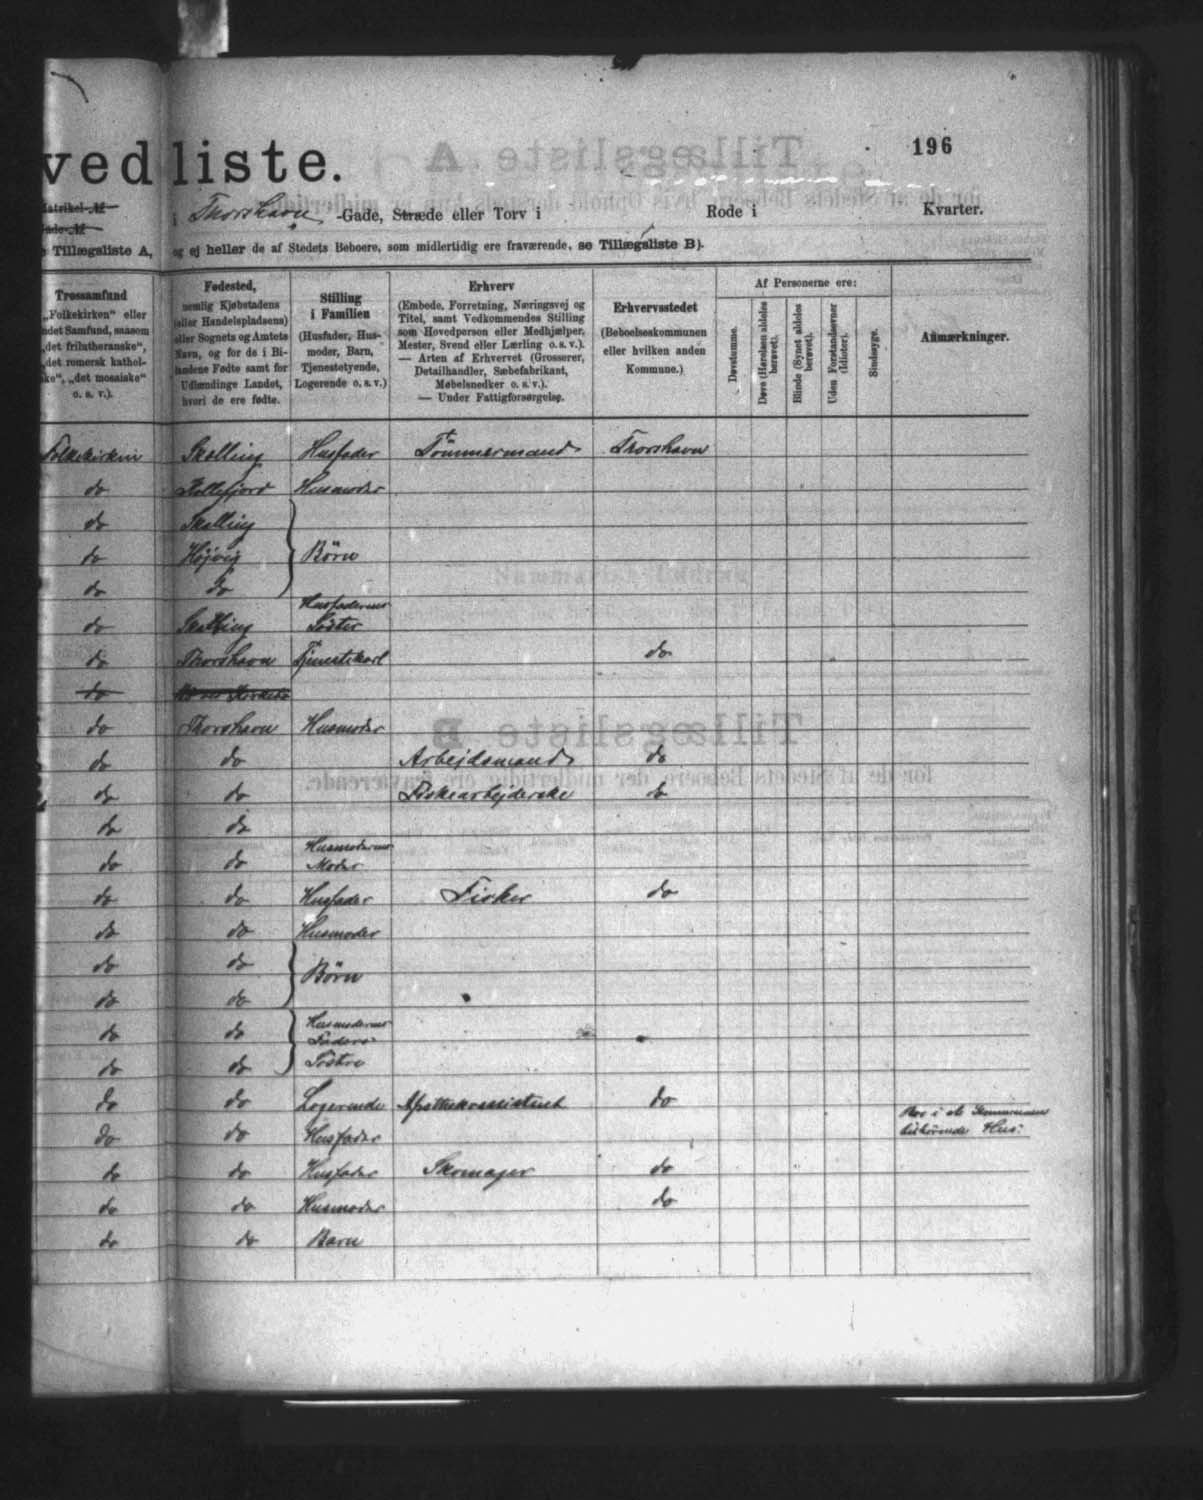 196
vedliste.
Matrikel-Af
Gade-Af
i Thorshavn -Gade, Stræde eller Torv i Rode i Kvarter.
Tillægsliste A, og ej heller de af Stedets Beboere, som midlertidig ere fraværende, se Tillægsliste B).
Trossamfund
„Folkekirken“ eller
andet Samfund, saasom
„det frilutheranske“,
„det romersk kathol-
ske“, „det mosaiske“
o. s. v.).
Fødested,
nemlig Kjøbstadens
(eller Handelspladsens)
eller Sognets og Amtets
Navn, og for de i Bi-
landene Fødte samt for
Udlændinge Landet,
hvori de ere fødte.
Stilling
i Familien
(Husfader, Hus-
moder, Barn,
Tjenestetyende,
Logerende o. s. v.)
Erhverv
(Embede, Forretning, Næringsvej og
Titel, samt Vedkommendes Stilling
som Hovedperson eller Medhjælper,
Mester, Svend eller Lærling o. s. v.).
— Arten af Erhvervet (Grosserer,
Detailhandler, Sæbefabrikant,
Møbelsnedker o. s. v.).
— Under Fattigforsørgelse.
Erhvervsstedet
(Beboelseskommunen
eller hvilken anden
Kommune.)
Af Personerne ere:
Døvstumme.
Døve (Hørelsen aldeles
berøvet).
Blinde (Synet aldeles
berøvet).
Uden Forstandsevner
(Idioter).
Sindssyge.
Anmærkninger.
Folkekirken Skælling Husfader Tømmermand Thorshavn
do Kollefjord Husmoder
do Skælling
do Højvig Børn
do do
do Skælling Husfaderens Søster
do Thorshavn Tjenestekarl do
do
do Thorshavn Husmoder
do do Arbejdsmand do
do do Fiskearbejderske do
do do
do do Husmoderens Moder
do do Husfader Fisker do
do do Husmoder
do do Børn
do do
do do Husmoderens Faders
do do Søstre
do do Logerende Apothekerassistent do
do do Husfader Bor i et Kommunen tilhørende Hus.
do do Husfader Skomager do
do do Husmoder do
do do Barn